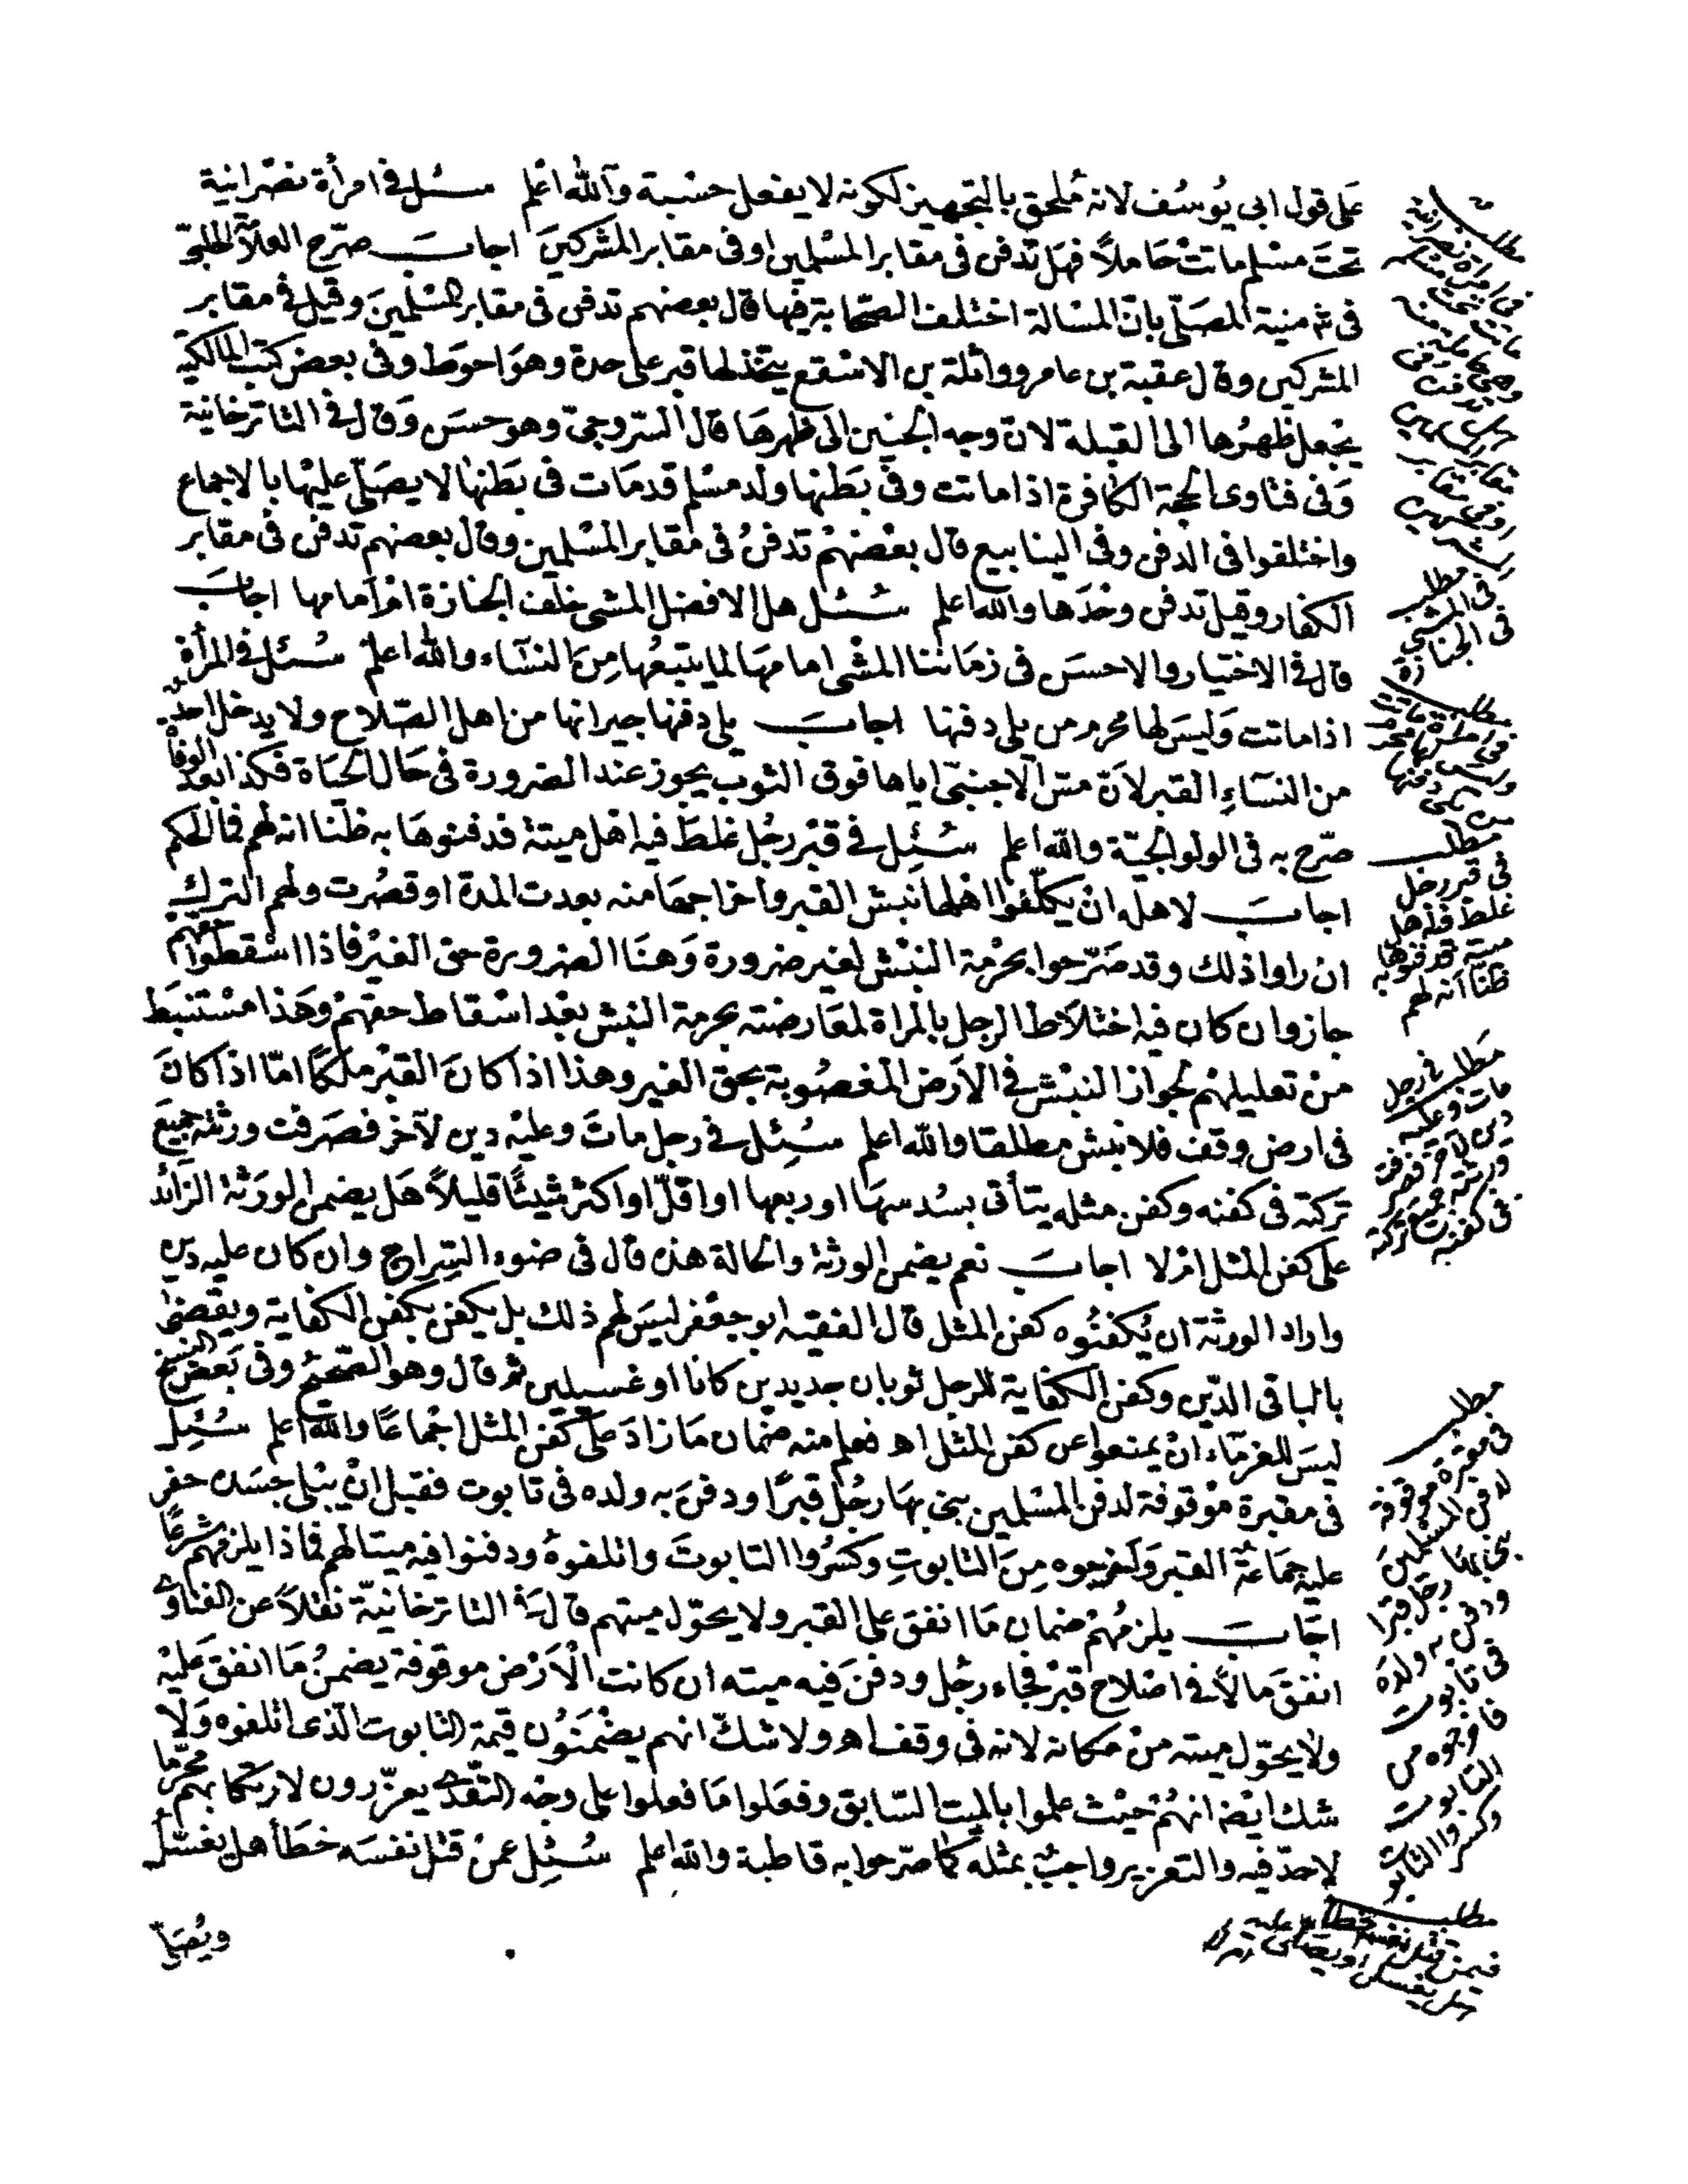 على قول ابي يوسف لانه ملحق بالتجهيز لكونه لا يفعل حسبة والله اعلم سئل في امرأة نصرانية
تحت مسلم ماتت حاملاً فهل تدفن فى مقابر المسلمين او فى مقابر المشركين اجاب صرّح العلامة الحلبى
فى شرح منية المصلّى بان المسالة اختلف الصحابة فيها قال بعضهم تدفن فى مقابر المسلمين وقيل فى مقابر
المشركين وقال عقبة بن عامر وواثلة بن الاسقع يتخذ لها قبر على حدة وهو احوط وفى بعض كتب المالكية
يجعل ظهرها الى القبلة لان وجه الجنين الى ظهرها قال السروجى وهو حسن وقال فى التاترخانية
وفى فتاوى الحجة الكافرة اذا ماتت وفى بطنها ولد مسلم قد مات فى بطنها لا يصلّى عليها بالاجماع
واختلفوا فى الدفن وفى الينابيع قال بعضهم تدفن فى مقابر المسلمين وقال بعضهم تدفن فى مقابر
الكفار وقيل تدفن وحدها والله اعلم سئل هل الافضل المشى خلف الجنازة ام امامها اجاب
قال فى الاختيار والاحسن فى زماننا المشى امامها لما يتبعها من النساء والله اعلم سئل فى المرأة
اذا ماتت وليس لها محرم من يلى دفنها اجاب يلى دفنها جيرانها من اهل الصلاح ولا يدخل احد
من النساء القبر لان مس الاجنبى اياها فوق الثوب يجوز عند الضرورة فى حال الحياة فكذا بعد الوفاة
صرّح به فى الولوالجيّة والله اعلم سئل فى قبر رجل غلط فيه اهل ميتة فدفنوها به ظنا انه لهم فما الحكم
اجاب لاهله ان يكلفوا اهلها نبش القبر واخراجها منه بعدت المدة او قصرت ولهم الترك
ان راوا ذلك وقد صرّحوا بحرمة النبش لغير ضرورة وهنا الضرورة حق الغير فاذا اسقطوا حقهم
جاز وان كان فيه اختلاط الرجل بالمراة لمعارضته بحرمة النبش بعد اسقاط حقهم وهذا مستنبط
من تعليلهم لجواز النبش فى الارض المغصوبة بحق الغير وهذا اذا كان القبر ملكًا امّا اذا كان
فى ارض وقف فلا نبش مطلقا والله اعلم سئل فى رجل مات وعليه دين لآخر فصرفت ورثته جميع
تركته فى كفنه وكفن مثله يتأتى بسدسها او ربعها او اقلّ او اكثر شيئًا قليلاً هل يضمن الورثة الزائد
على كفن المثل ام لا اجاب نعم يضمن الورثة والحالة هذه قال فى ضوء السراج وان كان عليه دين
واراد الورثة ان يكفنوه كفن المثل قال الفقيه ابو جعفر ليس لهم ذلك بل يكفن بكفن الكفاية ويقضى
بالباقى الدّين وكفن الكفاية للرجل ثوبان جديدين كانا او غسيلين ثم قال وهو الصحيح وفى بعض النسخ
ليس للغرماء ان يمنعوا عن كفن المثل اه فعلم منه ضمان ما زاد على كفن المثل اجماعًا والله اعلم سئل
فى مقبرة موقوفة لدفن المسلمين بنى بها رجل قبرًا ودفن به ولده فى تابوت فقبل ان يبلى جسده حفر
عليه جماعة القبر واخرجوه من التابوت وكسروا التابوت واتلفوه ودفنوا فيه ميتا لهم فماذا يلزمهم شرعًا
اجاب يلزمهم ضمان ما انفق على القبر ولا يحوّل ميتهم قال فى التاترخانيّة نقلاً عن الفتاوى
انفق مالاً فى اصلاح قبر فجاء رجل ودفن فيه ميته ان كانت الارض موقوفة يضمن ما انفق عليه
ولا يحوّل ميته من مكانه لانه فى وقف اه ولا شك انهم يضمنون قيمة التابوت الذى اتلفوه ولا
شك ايضا انهم حيث علموا بالميت السابق وفعلوا ما فعلوا على وجه التعدى يعزّرون لارتكابهم محرّما
لا حدّ فيه والتعزير واجب بمثله كما صرّحوا به قاطبة والله اعلم سئل عمن قتل نفسه خطأ هل يغسّل
ويُصلّى
مطلب
فى المشى
فى الجنازة
مطلب
فى قبر رجل
غلط فيه اهل
ميتة فدفنوها به
ظنا انه لهم
مطلب فى رجل
مات وعليه
دين لآخر فصرفت
ورثته جميع تركته
فى كفنه
مطلب
فى مقبرة موقوفة
لدفن المسلمين
بنى بها
رجل قبرا
ودفن به ولده
فى تابوت
فاخرجوه من
التابوت
وكسروا التابوت
مطلب
فيمن قتل نفسه خطأ
هل يغسل ويصلى عليه